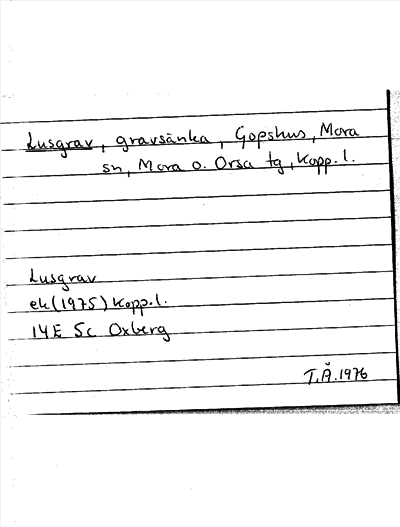 Lusgrav, gravsänka, Gopshus, Mora
sn, Mora o. Orsa tg, Kopp. l.
Lusgrav
ek (1975) Kopp. l.
14E 5c Oxberg
T.Å. 1976